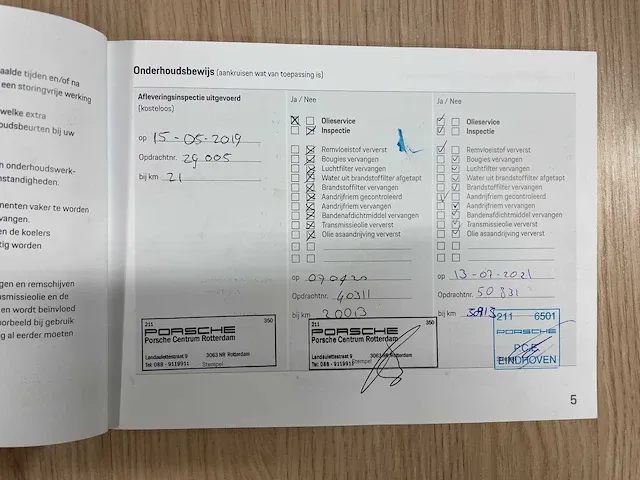 aalde tijden en/of na
een storingvrije werking
welke extra
oudsbeurten bij uw
n onderhoudswerk-
nstandigheden.
nenten vaker te worden
vangen.
en de koelers
tig worden
gen en remschijven
smissieolie en de
en wordt beïnvloed
oorbeeld bij gebruik
g al eerder moeten
Onderhoudsbewijs (aankruisen wat van toepassing is)
Afleveringsinspectie uitgevoerd
(kosteloos)
op 15-05-2019
Opdrachtnr. 29005
bij km 21
211 350
PORSCHE
Porsche Centrum Rotterdam
Landaulettestraat 9 3063 NR Rotterdam
Tel: 088 - 9119911 Stempel
Ja / Nee
Olieservice
Inspectie
Remvloeistof ververst
Bougies vervangen
Luchtfilter vervangen
Water uit brandstoffilter afgetapt
Brandstoffilter vervangen
Aandrijfriem gecontroleerd
Aandrijfriem vervangen
Bandenafdichtmiddel vervangen
Transmissieolie ververst
Olie asaandrijving ververst
op 070420
Opdrachtnr. 40311
bij km 20013
211 350
PORSCHE
Porsche Centrum Rotterdam
Landaulettestraat 9 3063 NR Rotterdam
Tel: 088 - 9119911 Stempel
Ja / Nee
Olieservice
Inspectie
Remvloeistof ververst
Bougies vervangen
Luchtfilter vervangen
Water uit brandstoffilter afgetapt
Brandstoffilter vervangen
Aandrijfriem gecontroleerd
Aandrijfriem vervangen
Bandenafdichtmiddel vervangen
Transmissieolie ververst
Olie asaandrijving ververst
op 13-07-2021
Opdrachtnr. 50831
bij km
211 6501
PORSCHE
P.C.E.
EINDHOVEN
5